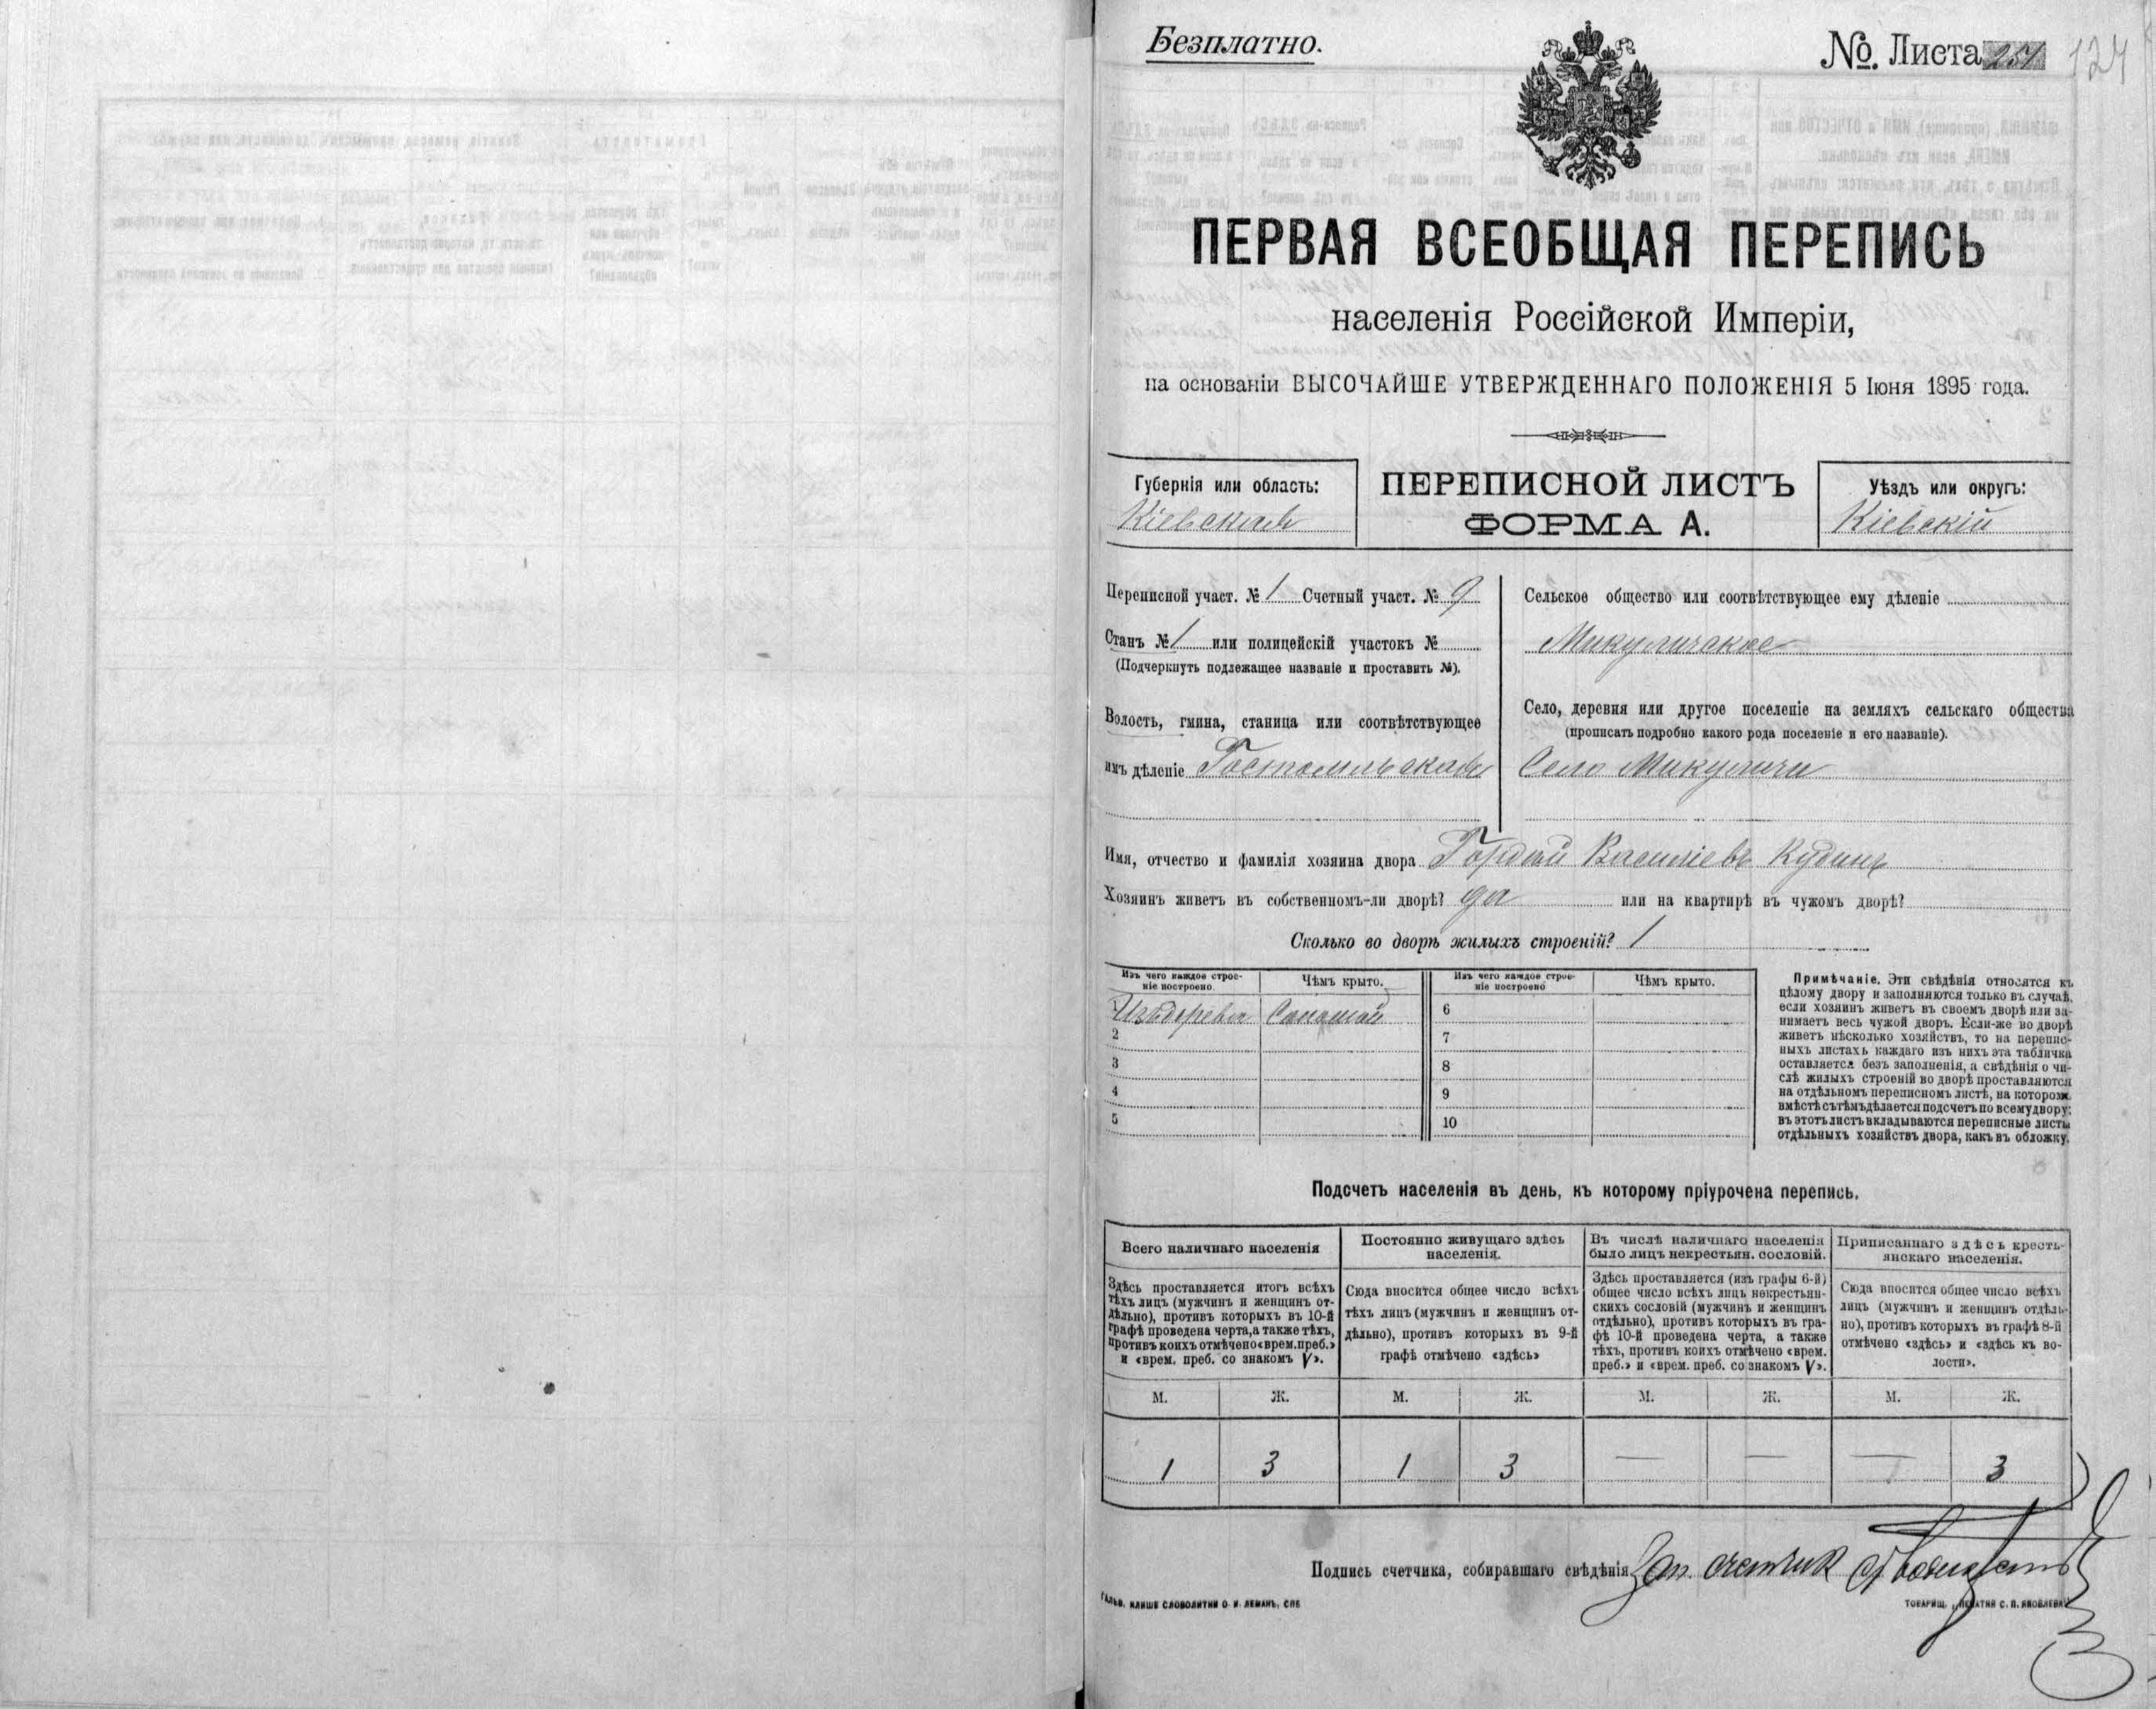 Безплатно.
№. Листа 251 124
ПЕРВАЯ ВСЕОБЩАЯ ПЕРЕПИСЬ
населенія Россійской Имперіи,
на основаніи ВЫСОЧАЙШЕ УТВЕРЖДЕННАГО ПОЛОЖЕНІЯ 5 Іюня 1895 года.
Губернія или область:
Кіевская
ПЕРЕПИСНОЙ ЛИСТЪ
ФОРМА А.
Уѣздъ или округъ:
Кіевскій
Переписной участ. № 1 Счетный участ. № 9
Станъ № 1 или полицейскій участокъ №
(Подчеркнуть подлежащее названіе и проставить №).
Волость, гмина, станица или соотвѣтствующее
имъ дѣленіе Гостомльская
Сельское общество или соотвѣтствующее ему дѣленіе
Микуличское
Село, деревня или другое поселеніе на земляхъ сельскаго общества
(прописать подробно какого рода поселеніе и его названіе).
Село Микуличи
Имя, отчество и фамилія хозяина двора Гордѣй Василіевъ Кудинъ
Хозяинъ живетъ въ собственномъ-ли дворѣ? да или на квартирѣ въ чужомъ дворѣ?
Сколько во дворѣ жилыхъ строеній? 1
Изъ чего каждое строе-
ніе построено.
Чѣмъ крыто.
Изъ чего каждое строе-
ніе построено
Чѣмъ крыто.
Изъ дерева Соломой
6
2
7
3
8
4
9
5
10
Примѣчаніе. Эти свѣдѣнія относятся къ
цѣлому двору и заполняются только въ случаѣ,
если хозяинъ живетъ въ своемъ дворѣ или за-
нимаетъ весь чужой дворъ. Если-же во дворѣ
живетъ нѣсколько хозяйствъ, то на перепис-
ныхъ листахъ каждаго изъ нихъ эта табличка
оставляется безъ заполненія, а свѣдѣнія о чи-
слѣ жилыхъ строеній во дворѣ проставляются
на отдѣльномъ переписномъ листѣ, на которомъ
вмѣстѣ съ тѣмъ дѣлается подсчетъ по всему двору;
въ этотъ листъ вкладываются переписные листы
отдѣльныхъ хозяйствъ двора, какъ въ обложку.
Подсчетъ населенія въ день, къ которому пріурочена перепись.
Всего наличнаго населенія
Здѣсь проставляется итогъ всѣхъ
тѣхъ лицъ (мужчинъ и женщинъ от-
дѣльно), противъ которыхъ въ 10-й
графѣ проведена черта, а также тѣхъ,
противъ коихъ отмѣчено «врем. преб.»
и «врем. преб. со знакомъ V».
Постоянно живущаго здѣсь
населенія.
Сюда вносится общее число всѣхъ
тѣхъ лицъ (мужчинъ и женщинъ от-
дѣльно), противъ которыхъ въ 9-й
графѣ отмѣчено «здѣсь»
Въ числѣ наличнаго населенія
было лицъ некрестьян. сословій.
Здѣсь проставляется (изъ графы 6-й)
общее число всѣхъ лицъ некрестьян-
скихъ сословій (мужчинъ и женщинъ
отдѣльно), противъ которыхъ въ гра-
фѣ 10-й проведена черта, а также
тѣхъ, противъ коихъ отмѣчено «врем.
преб.» и «врем. преб. со знакомъ V».
Приписаннаго здѣсь кресть-
янскаго населенія.
Сюда вносится общее число всѣхъ
лицъ (мужчинъ и женщинъ отдѣль-
но), противъ которыхъ въ графѣ 8-й
отмѣчено «здѣсь» и «здѣсь къ во-
лости».
М. Ж. М. Ж. М. Ж. М. Ж.
1 3 1 3 — — — 3
Подпись счетчика, собиравшаго свѣдѣнія Зап. счетчик
ГАЛЬВ. КЛИШЕ СЛОВОЛИТНИ О. И. ЛЕМАНЪ, СПБ
ТОВАРИЩ. „ПЕЧАТНЯ С. П. ЯКОВЛЕВА“